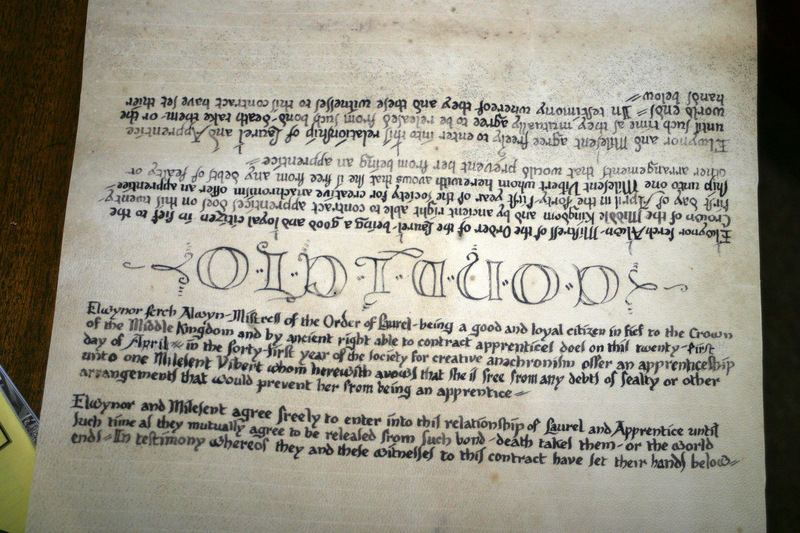 Elwynor ferch Alwn-Mistress of the Order of the Laurel-being a good and loyal citizen in fief to the
Crown of the Middle Kingdom and by ancient right able to contract apprentices does on this twenty
first day of April in the forty-first year of the society for creative anachronism offer an apprentice
ship unto one Milesent Vibert whom herewith avows that she is free from any debts of fealty or
other arrangements that would prevent her from being an apprentice=
Elwynor and Milesent agree freely to enter into this relationship of Laurel and Apprentice
until such time as they mutually agree to be released from such bond-death take them-or the
world ends= In testimony whereof they and these witnesses to this contract have set thier
hands below=
Elwynor ferch Alwyn-Mistress of the Order of Laurel-being a good and loyal citizen in fief to the Crown
of the Middle Kingdom and by ancient right able to contract apprentices does on this twenty-first
day of April= in the forty-first year of the society for creative anachronism offer an apprenticeship
unto one Milesent Vibert whom herewith avows that she is free from any debts of fealty or other
arrangements that would prevent her from being an apprentice=
Elwynor and Milesent agree freely to enter into this relationship of Laurel and Apprentice until
such time as they mutually agree to be released from such bond-death takes them-or the world
ends=In testimony whereof they and these witnesses to this contract have set their hands below=